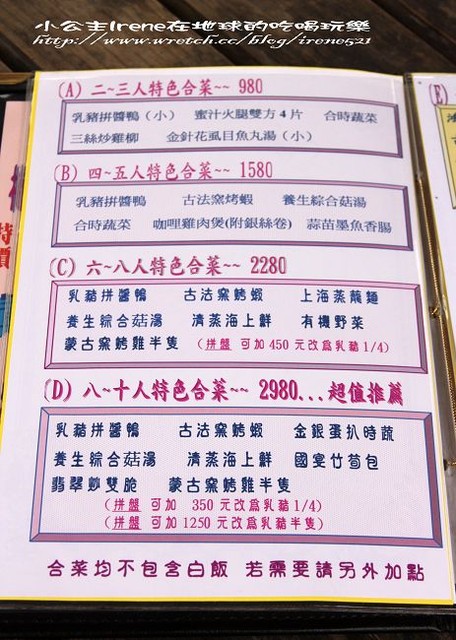 小公主Irene在地球的吃喝玩樂
http://www.wretch.cc/blog/irene521
(A) 二~三人特色合菜~~ 980
乳豬拼醬鴨（小） 蜜汁火腿雙方4片 合時蔬菜
三絲炒雞柳 金針花虱目魚丸湯（小）
(B) 四~五人特色合菜~~ 1580
乳豬拼醬鴨 古法窯烤蝦 養生綜合菇湯
合時蔬菜 咖哩雞肉煲(附銀絲卷) 蒜苗墨魚香腸
(C) 六~八人特色合菜~~ 2280
乳豬拼醬鴨 古法窯烤蝦 上海蒸籠麵
養生綜合菇湯 清蒸海上鮮 有機野菜
蒙古窯烤雞半隻 （拼盤 可加450元改為乳豬1/4）
(D) 八~十人特色合菜~~ 2980...超值推薦
乳豬拼醬鴨 古法窯烤蝦 金銀蛋扒時蔬
養生綜合菇湯 清蒸海上鮮 國宴竹荀包
翡翠炒雙脆 蒙古窯烤雞半隻
（拼盤 可加 350元改為乳豬1/4）
（拼盤 可加1250元改為乳豬半隻）
合菜均不包含白飯 若需要請另外加點
(E)
特價